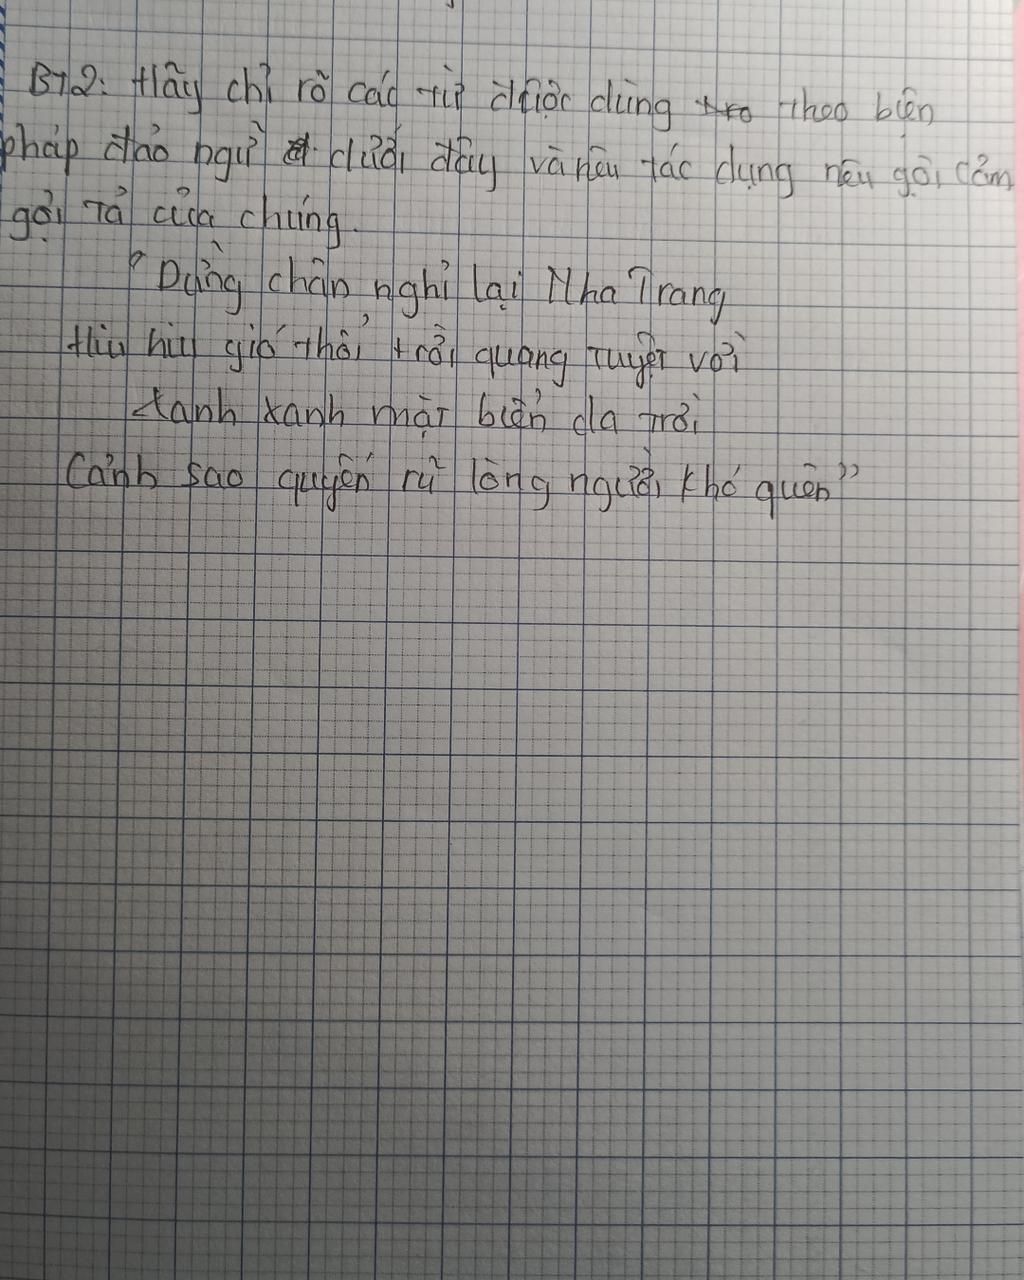 BT2: Hãy chỉ rõ các từ được dùng theo biện
pháp đảo ngữ dưới đây và nêu tác dụng nêu gợi cảm
gợi tả của chúng.
"Dừng chân nghỉ lại Nha Trang
Hiu hiu gió thổi trời quang tuyệt vời
Xanh xanh mặt biển da trời
Cảnh sao quyến rũ lòng người khó quên"